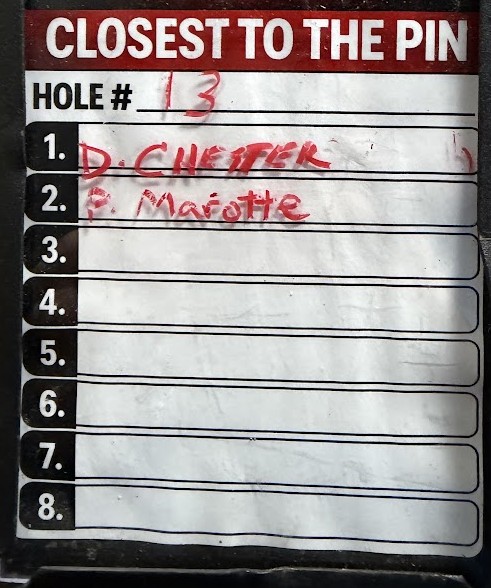 CLOSEST TO THE PIN
HOLE # 13
1. D. CHEFFER
2. P. Marotte
3.
4.
5.
6.
7.
8.